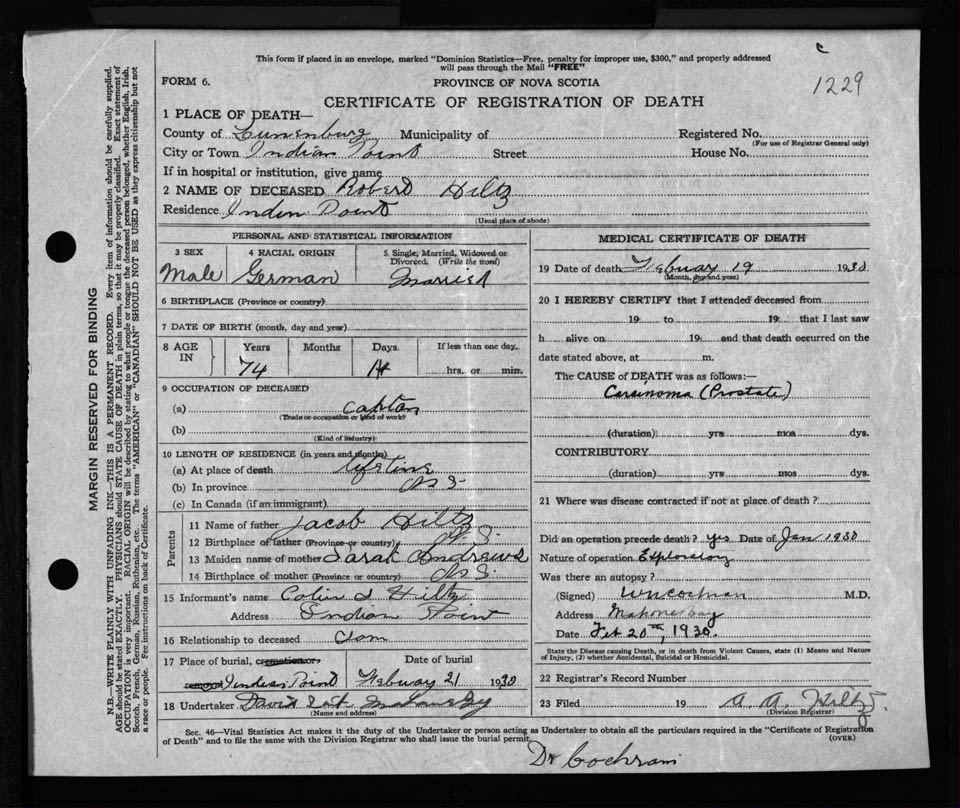 c
This form if placed in an envelope, marked "Dominion Statistics—Free, penalty for improper use, $300," and properly addressed
will pass through the Mail "FREE"
1229
FORM 6.
PROVINCE OF NOVA SCOTIA
CERTIFICATE OF REGISTRATION OF DEATH
1 PLACE OF DEATH—
County of Lunenburg Municipality of Registered No.
(For use of Registrar General only)
City or Town Indian Point Street House No.
If in hospital or institution, give name
2 NAME OF DECEASED Robert Hiltz
Residence Inden Point
(Usual place of abode)
PERSONAL AND STATISTICAL INFORMATION
3 SEX 4 RACIAL ORIGIN 5 Single, Married, Widowed or
Divorced. (Write the word)
Male German Married
6 BIRTHPLACE (Province or country)
7 DATE OF BIRTH (month, day and year)
8 AGE IN Years Months Days If less than one day,
74 hrs. or min.
9 OCCUPATION OF DECEASED
(a) captan
(Trade or occupation or kind of work)
(b)
(Kind of industry)
10 LENGTH OF RESIDENCE (in years and months)
(a) At place of death lifetime
(b) In province N S
(c) In Canada (if an immigrant)
Parents
11 Name of father Jacob Hiltz
12 Birthplace of father (Province or country) N. S.
13 Maiden name of mother Sarah Andrews
14 Birthplace of mother (Province or country) N S.
15 Informant's name Colin Hiltz
Address Indian Point
16 Relationship to deceased Son
17 Place of burial, cremation or Date of burial
removal Indian Point Febuary 21 1930
18 Undertaker David
(Name and address)
MEDICAL CERTIFICATE OF DEATH
19 Date of death Febuary 19 1930
(Month, day and year)
20 I HEREBY CERTIFY that I attended deceased from
19 to 19 that I last saw
h alive on 19 and that death occurred on the
date stated above, at m.
The CAUSE of DEATH was as follows:—
Carsinoma (Prostate)
(duration) yrs mos dys.
CONTRIBUTORY
(duration) yrs mos dys.
21 Where was disease contracted if not at place of death?
Did an operation precede death? yes Date of Jan 1930
Nature of operation Exploratory
Was there an autopsy?
(Signed) W N Cochran M.D.
Address Mahone bay
Date Feb 20th, 1930.
State the Disease causing Death, or in death from Violent Causes, state (1) Means and Nature
of Injury, (2) whether Accidental, Suicidal or Homicidal.
22 Registrar's Record Number
23 Filed 19 A. A. Hiltz.
(Division Registrar)
Sec. 46—Vital Statistics Act makes it the duty of the Undertaker or person acting as Undertaker to obtain all the particulars required in the "Certificate of Registration
of Death" and to file the same with the Division Registrar who shall issue the burial permit. (OVER)
Dr Cochram
MARGIN RESERVED FOR BINDING
N.B.—WRITE PLAINLY WITH UNFADING INK—THIS IS A PERMANENT RECORD. Every item of information should be carefully supplied.
AGE should be stated EXACTLY. PHYSICIANS should STATE CAUSE OF DEATH in plain terms, so that it may be properly classified. Exact statement of
OCCUPATION is very important. RACIAL ORIGIN will be described by stating to what people or tongue the deceased person belonged, whether English, Irish,
Scotch, French, German, Russian, Ruthenian, etc. The terms "AMERICAN" or "CANADIAN" SHOULD NOT BE USED as they express citizenship but not
a race or people. Fee instructions on back of Certificate.